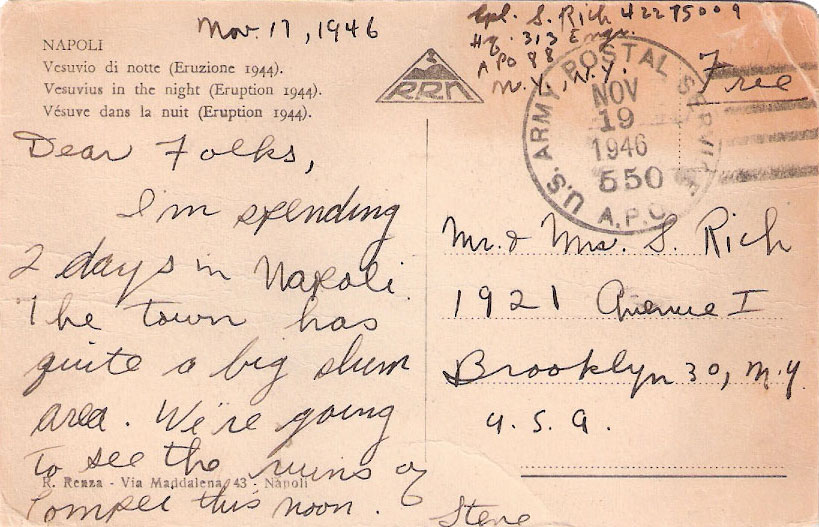 Nov. 17, 1946
NAPOLI
Vesuvio di notte (Eruzione 1944).
Vesuvius in the night (Eruption 1944).
Vésuve dans la nuit (Eruption 1944).
RRN
Cpl. S. Rich 42295009
Hq. 313 Engr.
APO 88
N.Y., N.Y.
Free
U.S. ARMY POSTAL SERVICE
NOV
19
1946
550
A.P.O.
Dear Folks,
I'm spending
2 days in Napoli.
The town has
quite a big slum
area. We're going
to see the ruins of
Pompei this noon.
Steve
R. Renza - Via Maddalena, 43 - Napoli
Mr. & Mrs. S. Rich
1921 Avenue I
Brooklyn 30, N.Y.
U.S.A.